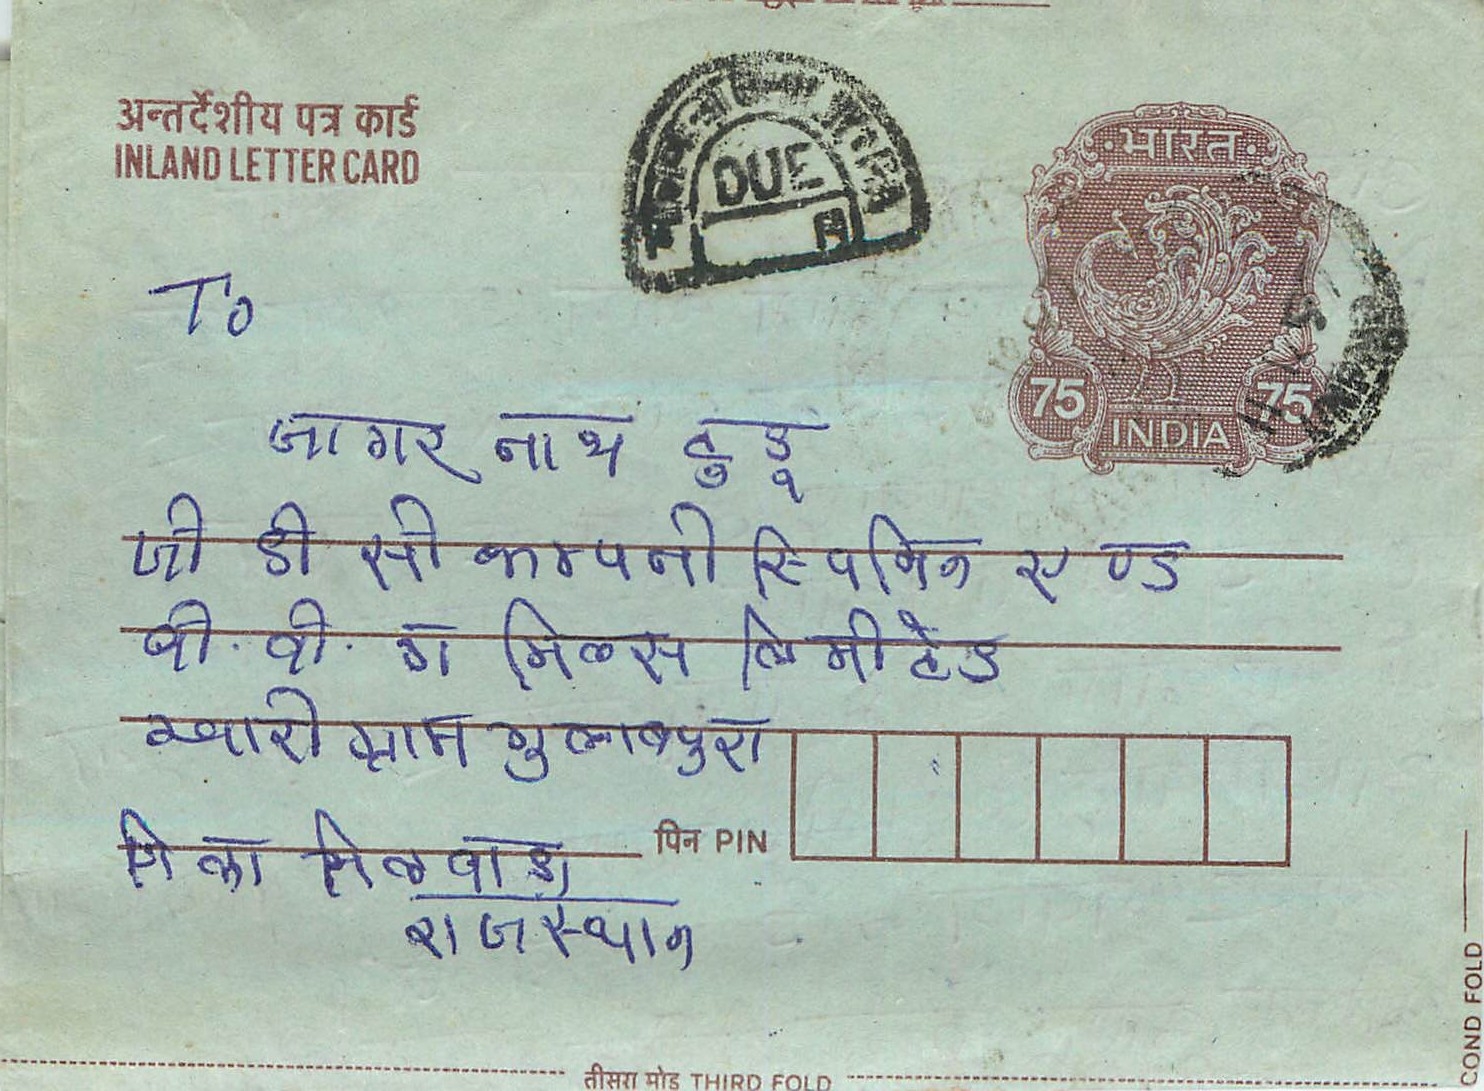 अन्तर्देशीय पत्र कार्ड
INLAND LETTER CARD
DUE
भारत
75 75
INDIA
To
जागर नाथ टुडू
जी डी सी कम्पनी स्पिनिग एण्ड
बी. वी. ग मिल्स लिमीटेड
ग्राम गुलाबपुरा
पिन PIN
जिला भिलवाडा
राजस्थान
तीसरा मोड़ THIRD FOLD
COND FOLD